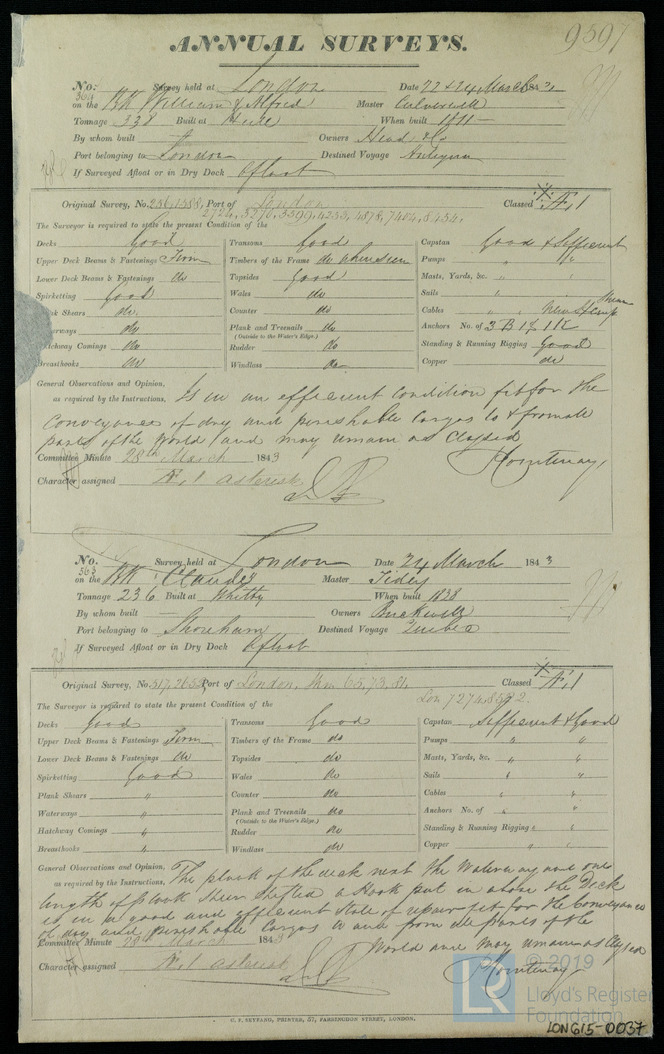 9597
ANNUAL SURVEYS.
No. 564 Survey held at London Date 22 & 24 March 1843
on the BK William & Alfred Master Culverwell
Tonnage 338 Built at When built
By whom built — Owners Head & Co
Port belonging to London Destined Voyage Antigua
If Surveyed Afloat or in Dry Dock Afloat
Original Survey, No. 256,1588, Port of London Classed Æ,1
2724, 5270, 5599, 4233, 4878, 7404, 8454,
The Surveyor is required to state the present Condition of the
Decks Good Transoms Good Capstan Good & Sufficient
Upper Deck Beams & Fastenings Firm Timbers of the Frame do where seen Pumps " "
Lower Deck Beams & Fastenings do Topsides Good Masts, Yards, &c. " "
Spirketting Good Wales do Sails " "
Plank Shears do Counter do Cables " "
Waterways do Plank and Treenails do Anchors No. of 3 B 1 S 1 K
(Outside to the Water's Edge.)
Hatchway Comings do Rudder do Standing & Running Rigging Good
Breasthooks do Windlass do Copper do
General Observations and Opinion, Is in an efficient condition fit for the
as required by the Instructions,
conveyance of dry and perishable cargos to & from all
parts of the World and may remain as Classed
Committee Minute 28th March 1843 Courtenay
Character assigned Æ,1 asterisk
No. 563 Survey held at London Date 24 March 1843
on the BK Master
Tonnage 236 Built at Whitby When built 1838
By whom built — Owners Buckwell
Port belonging to Shoreham Destined Voyage Quebec
If Surveyed Afloat or in Dry Dock Afloat
Original Survey, No. 317, 2653, Port of London, Shm 65,73,81, Classed Æ,1
Lon 7274, 8582
The Surveyor is required to state the present Condition of the
Decks Good Transoms Good Capstan Sufficient & Good
Upper Deck Beams & Fastenings Firm Timbers of the Frame do Pumps " "
Lower Deck Beams & Fastenings do Topsides do Masts, Yards, &c. " "
Spirketting Good Wales do Sails " "
Plank Shears " Counter do Cables " "
Waterways " Plank and Treenails do Anchors No. of " "
(Outside to the Water's Edge.)
Hatchway Comings " Rudder do Standing & Running Rigging " "
Breasthooks " Windlass do Copper " "
General Observations and Opinion, The plank of the deck next the Waterway and one
as required by the Instructions,
length of plank sheer shifted a Hook put in above the Deck
is in a good and efficient state of repair fit for the conveyance
of dry and perishable cargos to and from all parts of the
Committee Minute 28th March 1843 World and may remain as Classed
Character assigned Æ,1 asterisk Courtenay
C. F. SEYFANG, PRINTER, 57, FARRINGDON STREET, LONDON.
LR © 2019
Lloyd's Register
Foundation
LON615-0037